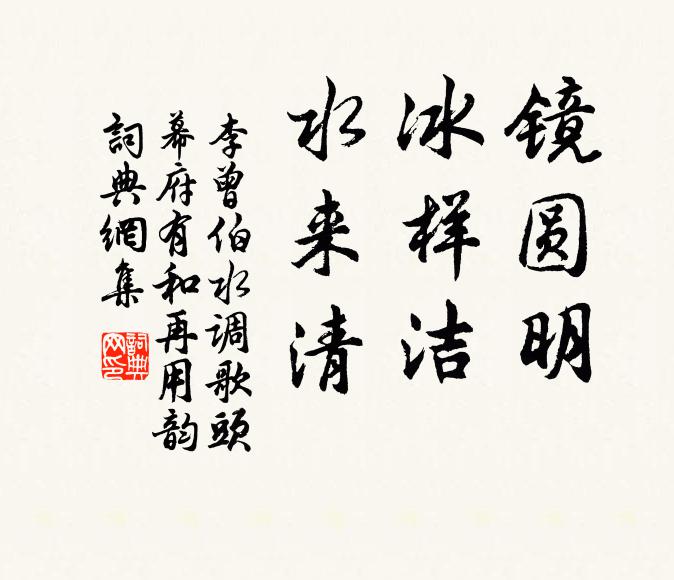 镜圆明
冰样洁
水来清
李曾伯水调歌头
幕府有和再用韵
詞典網集
詞典
网印